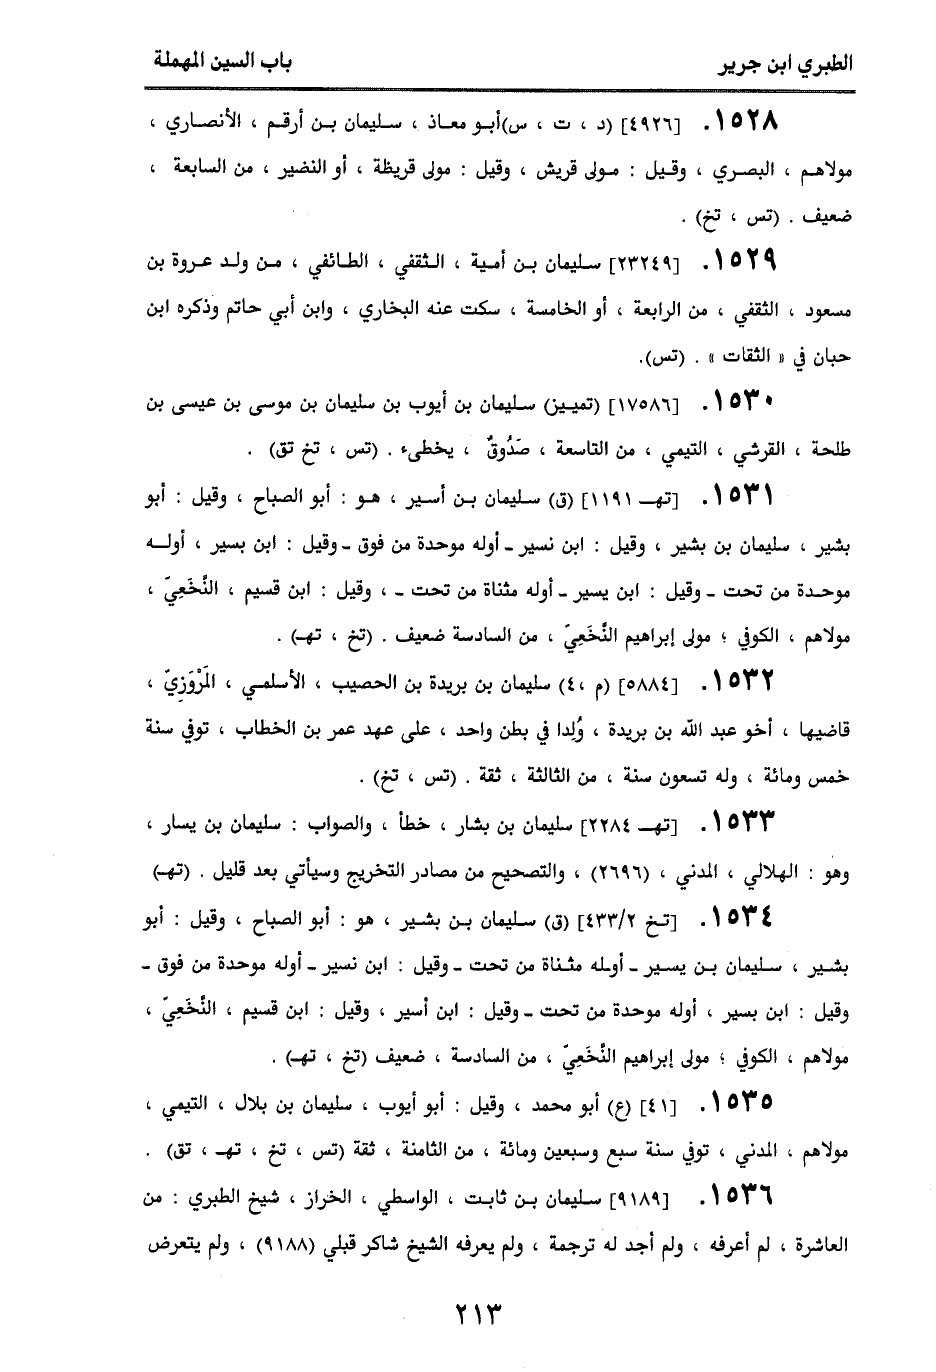 الطبري ابن جرير باب السين المهملة
١٥٢٨. [٤٩٢٦] (د ، ت ، س)أبو معاذ ، سليمان بن أرقم ، الأنصاري ،
مولاهم ، البصري ، وقيل : مولى قريش ، وقيل : مولى قريظة ، أو النضير ، من السابعة ،
ضعيف . (تس ، تخ) .
١٥٢٩. [٢٣٢٤٩] سليمان بن أمية ، الثقفي ، الطائفي ، من ولد عروة بن
مسعود ، الثقفي ، من الرابعة ، أو الخامسة ، سكت عنه البخاري ، وابن أبي حاتم وذكره ابن
حبان في « الثقات » . (تس).
١٥٣٠. [١٧٥٨٦] (تمييز) سليمان بن أيوب بن سليمان بن موسى بن عيسى بن
طلحة ، القرشي ، التيمي ، من التاسعة ، صَدُوقٌ ، يخطىء . (تس ، تخ تق) .
١٥٣١. [تهـ ١١٩١] (ق) سليمان بن أسير ، هو : أبو الصباح ، وقيل : أبو
بشير ، سليمان بن بشير ، وقيل : ابن نسير ـ أوله موحدة من فوق ـ وقيل : ابن بسير ، أوله
موحدة من تحت ـ وقيل : ابن يسير ـ أوله مثناة من تحت ـ ، وقيل : ابن قسيم ، النَّخَعِيّ ،
مولاهم ، الكوفي ؛ مولى إبراهيم النَّخَعِيّ ، من السادسة ضعيف . (تخ ، تهـ) .
١٥٣٢. [٥٨٨٤] (م ،٤) سليمان بن بريدة بن الحصيب ، الأسلمي ، المَرْوَزِيّ ،
قاضيها ، أخو عبد الله بن بريدة ، وُلِدا في بطن واحد ، على عهد عمر بن الخطاب ، توفي سنة
خمس ومائة ، وله تسعون سنة ، من الثالثة ، ثقة . (تس ، تخ) .
١٥٣٣. [تهـ ٢٢٨٤] سليمان بن بشار ، خطأ ، والصواب : سليمان بن يسار ،
وهو : الهلالي ، المدني ، (٢٦٩٦) ، والتصحيح من مصادر التخريج وسيأتي بعد قليل . (تهـ)
١٥٣٤. [تخ ٤٣٣/٢] (ق) سليمان بن بشير ، هو : أبو الصباح ، وقيل : أبو
بشير ، سليمان بن يسير ـ أوله مثناة من تحت ـ وقيل : ابن نسير ـ أوله موحدة من فوق ـ
وقيل : ابن بسير ، أوله موحدة من تحت ـ وقيل : ابن أسير ، وقيل : ابن قسيم ، النَّخَعِيّ ،
مولاهم ، الكوفي ؛ مولى إبراهيم النَّخَعِيّ ، من السادسة ، ضعيف (تخ ، تهـ) .
١٥٣٥. [٤١] (ع) أبو محمد ، وقيل : أبو أيوب ، سليمان بن بلال ، التيمي ،
مولاهم ، المدني ، توفي سنة سبع وسبعين ومائة ، من الثامنة ، ثقة (تس ، تخ ، تهـ ، تق) .
١٥٣٦. [٩١٨٩] سليمان بن ثابت ، الواسطي ، الخراز ، شيخ الطبري : من
العاشرة ، لم أعرفه ، ولم أجد له ترجمة ، ولم يعرفه الشيخ شاكر قبلي (٩١٨٨) ، ولم يتعرض
٢١٣